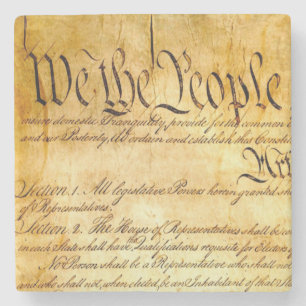 We the People
insure domestic Tranquility, provide for the common d
and our Posterity, do ordain and establish this Const
Art
Section 1. All legislative Powers herein granted sha
of Representatives.
Section 2. The House of Representatives shall be co
in each State shall have the Qualifications requisite for Electors o
No Person shall be a Representative who shall not
and who shall not, when elected, be an Inhabitant of that S